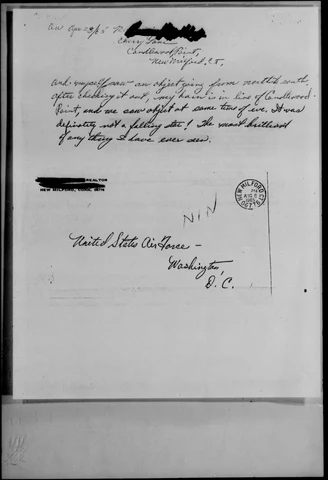 Cherry Lane
Candlewood Point,
New Milford, Ct.
and myself saw – an object going from north to south,
after checking it out, my home is in line of Candlewood
Point, and we saw object at same time of eve. It was
definitely not a falling star! The most brilliant
of any thing I have ever seen.
REALTOR
NEW MILFORD, CONN. 06776
NIN
NEW MILFORD, CT.
PM
AUG
1965
06776
United States Air Force –
Washington,
D. C.